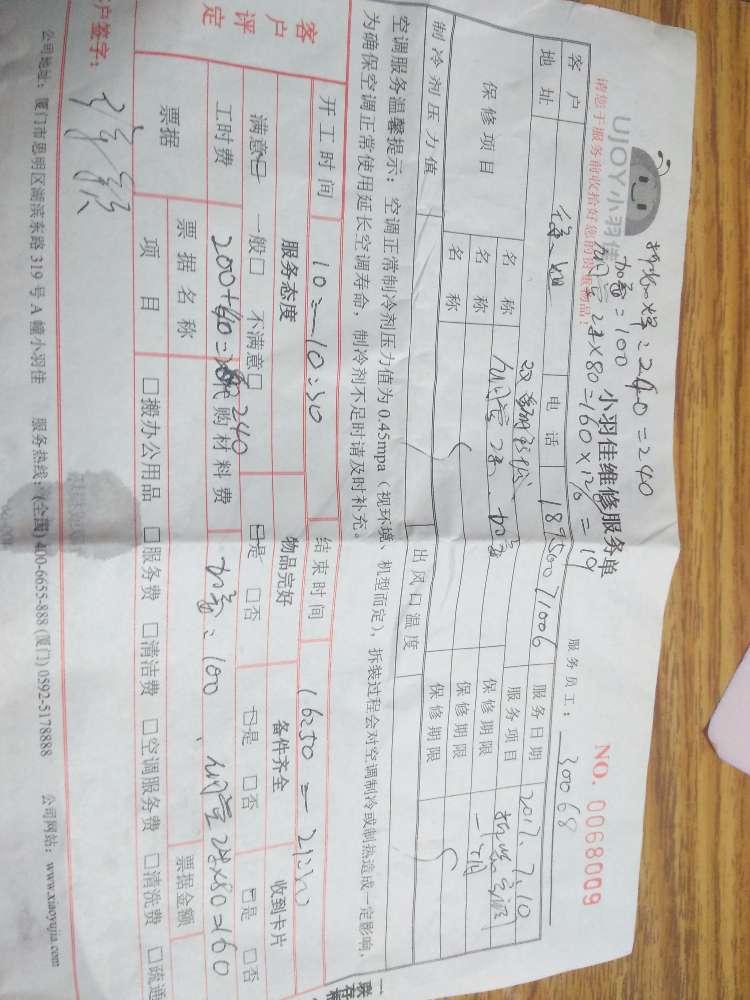 拆 : 240 = 240
加氟 : 100
铜管 2米×80=160×12% = 19
UJOY小羽佳
小羽佳维修服务单
NO. 0068009
请您于服务前收拾好您的贵重物品!
服务员工: 30068
客户 电话 18750071006 服务日期 2017.7.10
地址 服务项目
保修项目 名称 铜管 2米、加氟 保修期限 一个月
名称 保修期限
名称 保修期限
制冷剂压力值 出风口温度
空调服务温馨提示: 空调正常制冷剂压力值为 0.45mpa (视环境、机型而定), 拆装过程会对空调制冷或制热造成一定影响,
为确保空调正常使用延长空调寿命, 制冷剂不足时请及时补充。
开工时间 10:—10:30 结束时间 16:50 —
客户评定
服务态度 物品完好 备件齐全 收到卡片
满意☑ 一般□ 不满意□ ☑是 □否 ☑是 □否 ☑是 □否
工时费 200+40= 240 代购材料费 加氟: 100 、铜管2米×80=160
票据 票据名称 票据金额
项目 □搬办公用品 □服务费 □清洁费 □空调服务费 □清洗费 □疏通
户签字:
公司地址: 厦门市思明区湖滨东路 319 号 A 幢小羽佳 服务热线: (全国) 400-6655-888 (厦门) 0592-5178888 公司网站: www.xiaoyujia.com